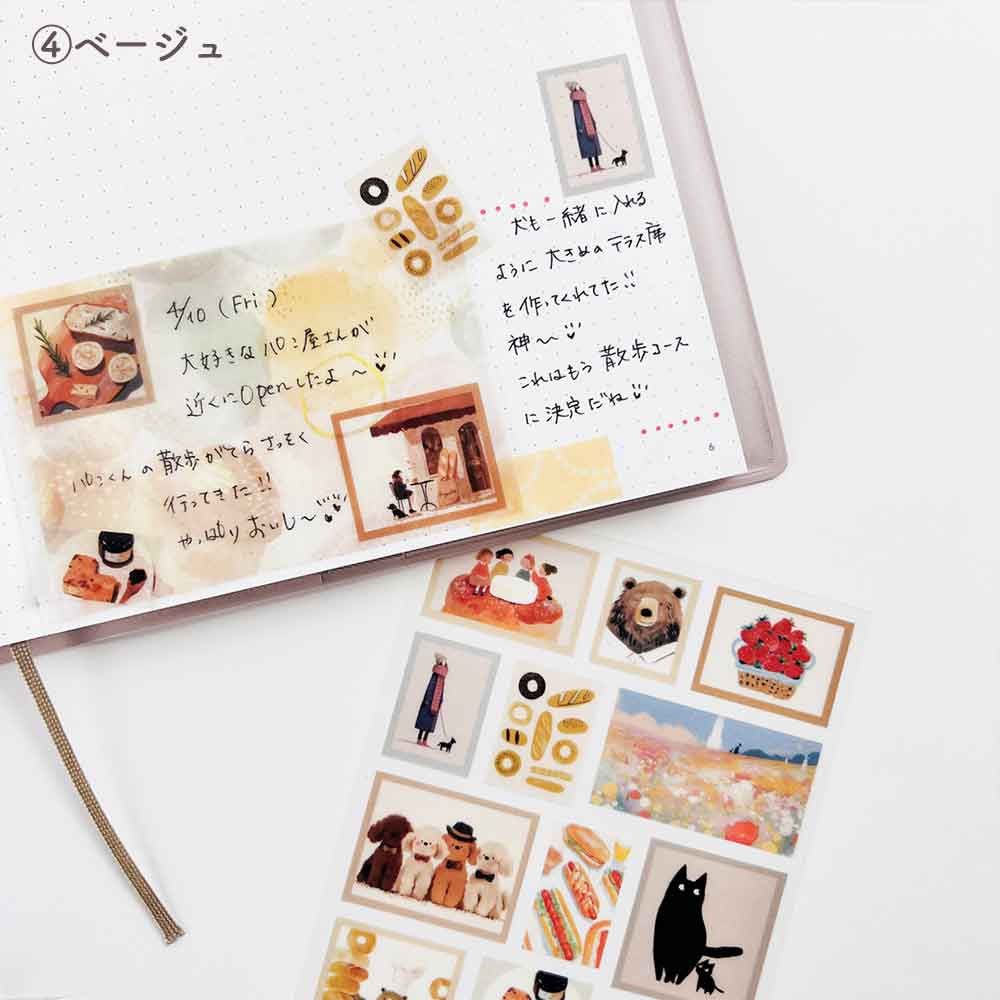 ④ベージュ
4/10 (Fri)
大好きなパン屋さんが
近くにOpenしたよ〜
パンくんの散歩がてらさっそく
行ってきた!!
やっぱりおいし〜
犬も一緒に入れる
ように大きめのテラス席
を作ってくれてた!!
神〜
これはもう散歩コース
に決定だね
6